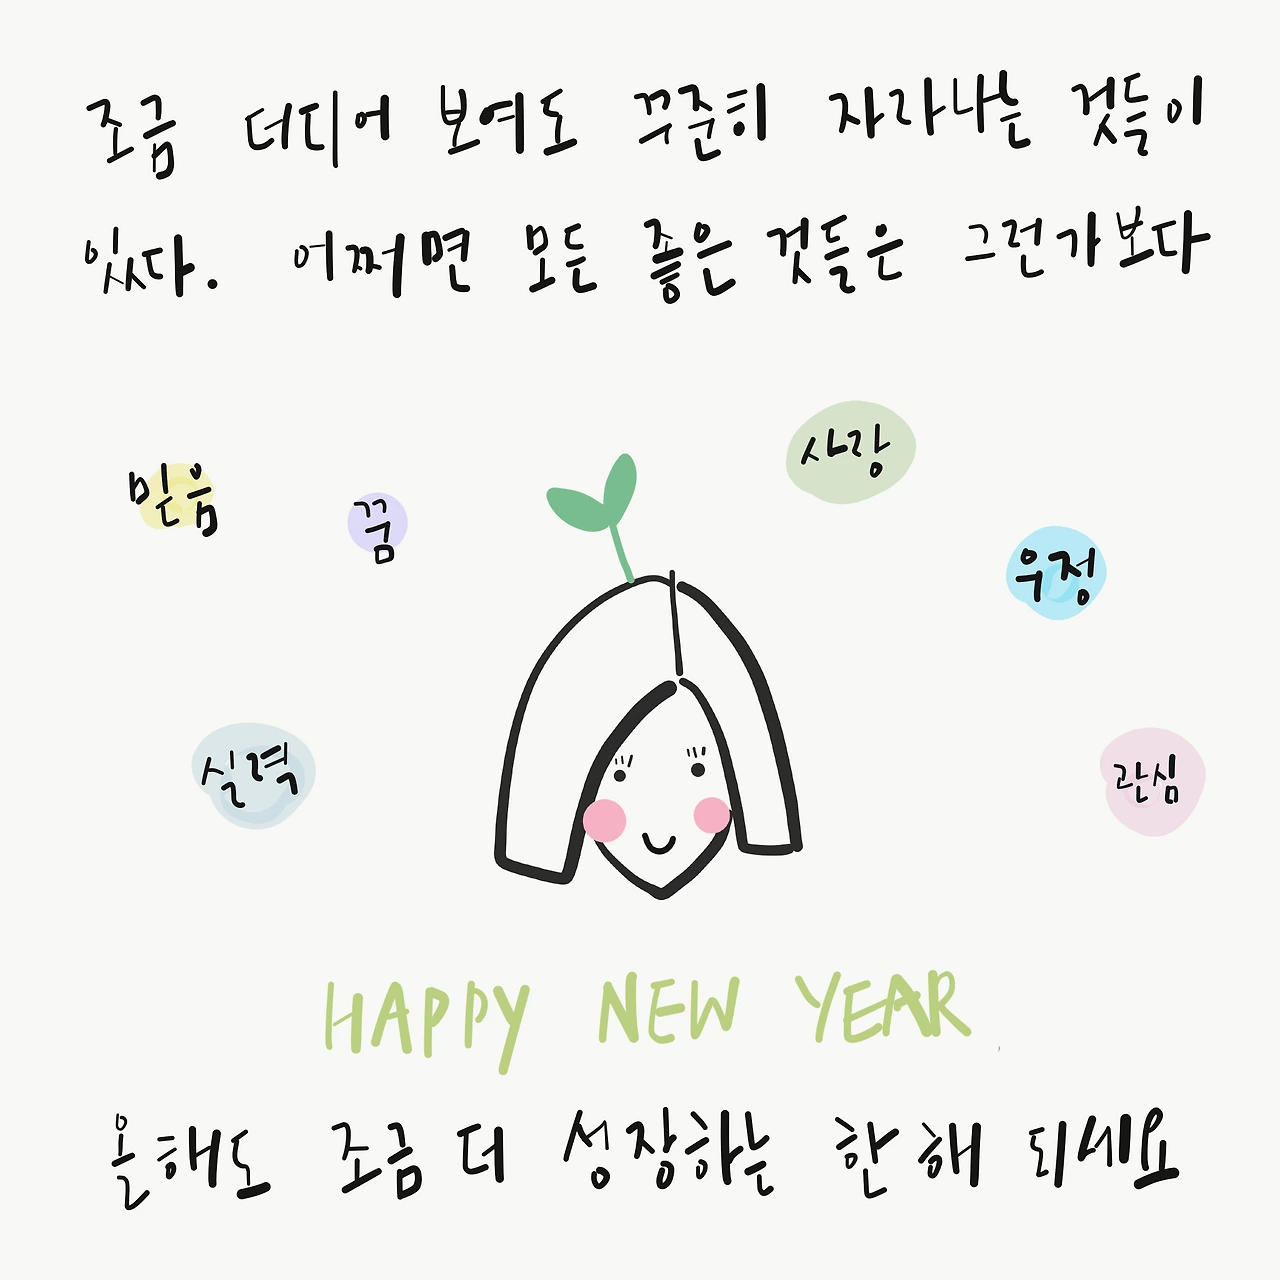 조금 더디어 보여도 꾸준히 자라나는 것들이
있다. 어쩌면 모든 좋은 것들은 그런가보다
사랑
믿음
꿈
우정
실력
관심
HAPPY NEW YEAR
올해도 조금 더 성장하는 한 해 되세요